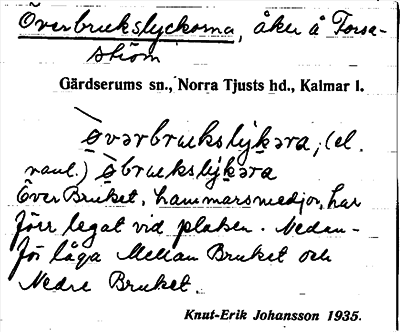 Överbrukslyckorna, åker å Forsa-
ström
Gärdserums sn., Norra Tjusts hd., Kalmar l.
övərbrukslykəra, (el.
vanl.) öbrukslykəra
Över Bruket, hammarsmedjor, har
förr legat vid platsen. Nedan-
för låga Mellan Bruket och
Nedre Bruket.
Knut-Erik Johansson 1935.